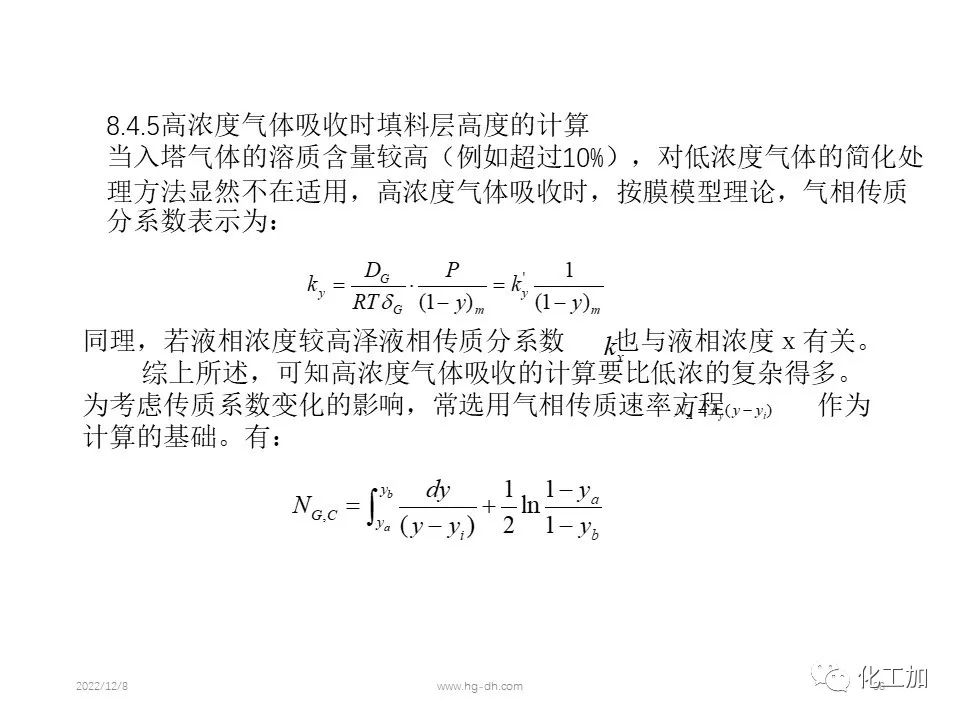 8.4.5高浓度气体吸收时填料层高度的计算
当入塔气体的溶质含量较高（例如超过10%），对低浓度气体的简化处
理方法显然不在适用，高浓度气体吸收时，按膜模型理论，气相传质
分系数表示为：
k_y = D_G/(RTδ_G) · P/(1−y)_m = k'_y 1/(1−y)_m
同理，若液相浓度较高泽液相传质分系数 k_x 也与液相浓度 x 有关。
综上所述，可知高浓度气体吸收的计算要比低浓的复杂得多。
为考虑传质系数变化的影响，常选用气相传质速率方程 (y−y_i) 作为
计算的基础。有：
N_{G,C} = ∫_{y_a}^{y_b} dy/(y−y_i) + 1/2 ln (1−y_a)/(1−y_b)
2022/12/8
www.hg-dh.com
化工加